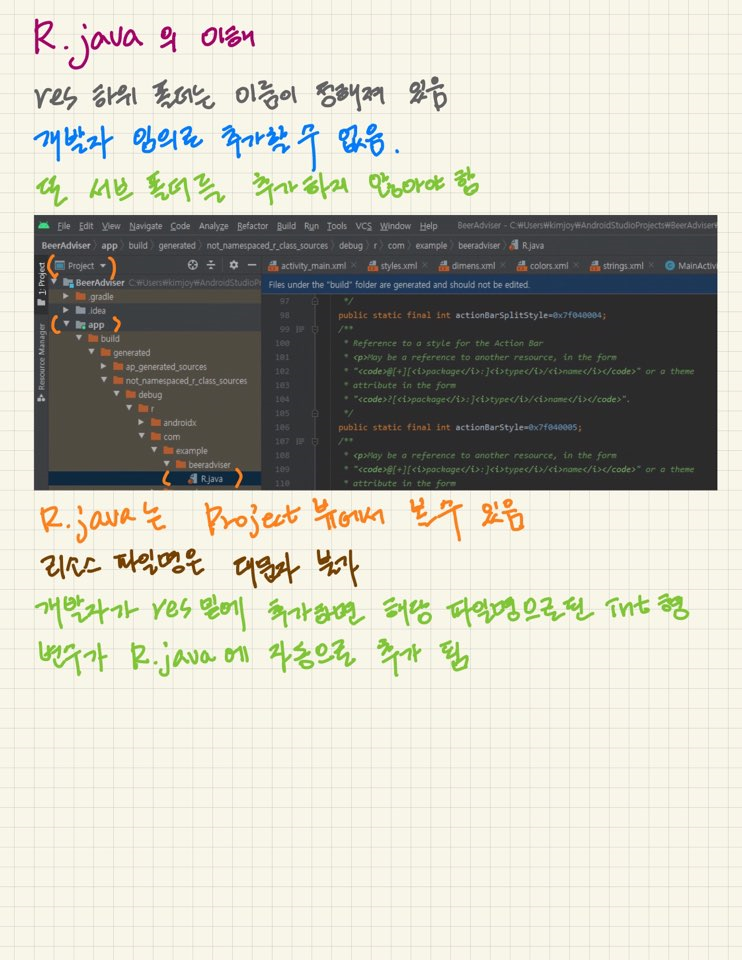 R.java의 이해
res 하위 폴더는 이름이 정해져 있음
개발자 임의로 추가할 수 없음.
또 서브 폴더를 추가하지 않아야 함
File Edit View Navigate Code Analyze Refactor Build Run Tools VCS Window Help BeerAdviser - C:₩Users₩kimjoy₩AndroidStudioProjects₩BeerAdviser₩
BeerAdviser app build generated not_namespaced_r_class_sources debug r com example beeradviser R.java
1: Project
Resource Manager
Project
BeerAdviser C:₩Users₩kimjoy₩AndroidStudioPr
.gradle
.idea
( app )
build
generated
ap_generated_sources
not_namespaced_r_class_sources
debug
r
androidx
com
example
beeradviser
( R.java )
activity_main.xml styles.xml dimens.xml colors.xml strings.xml MainActivi
Files under the "build" folder are generated and should not be edited.
97 */
98 public static final int actionBarSplitStyle=0x7f040004;
99 /**
100 * Reference to a style for the Action Bar
101 * <p>May be a reference to another resource, in the form
102 * "<code>@[+][<i>package</i>:]<i>type</i>/<i>name</i></code>" or a theme
103 attribute in the form
104 * "<code>?[<i>package</i>:]<i>type</i>/<i>name</i></code>".
105 */
106 public static final int actionBarStyle=0x7f040005;
107 /**
108 * <p>May be a reference to another resource, in the form
109 * "<code>@[+][<i>package</i>:]<i>type</i>/<i>name</i></code>" or a theme
110 * attribute in the form
R.java는 Project 뷰에서 볼 수 있음
리소스 파일명은 대문자 불가
개발자가 res 밑에 추가하면 해당 파일명으로 된 int 형
변수가 R.java에 자동으로 추가 됨